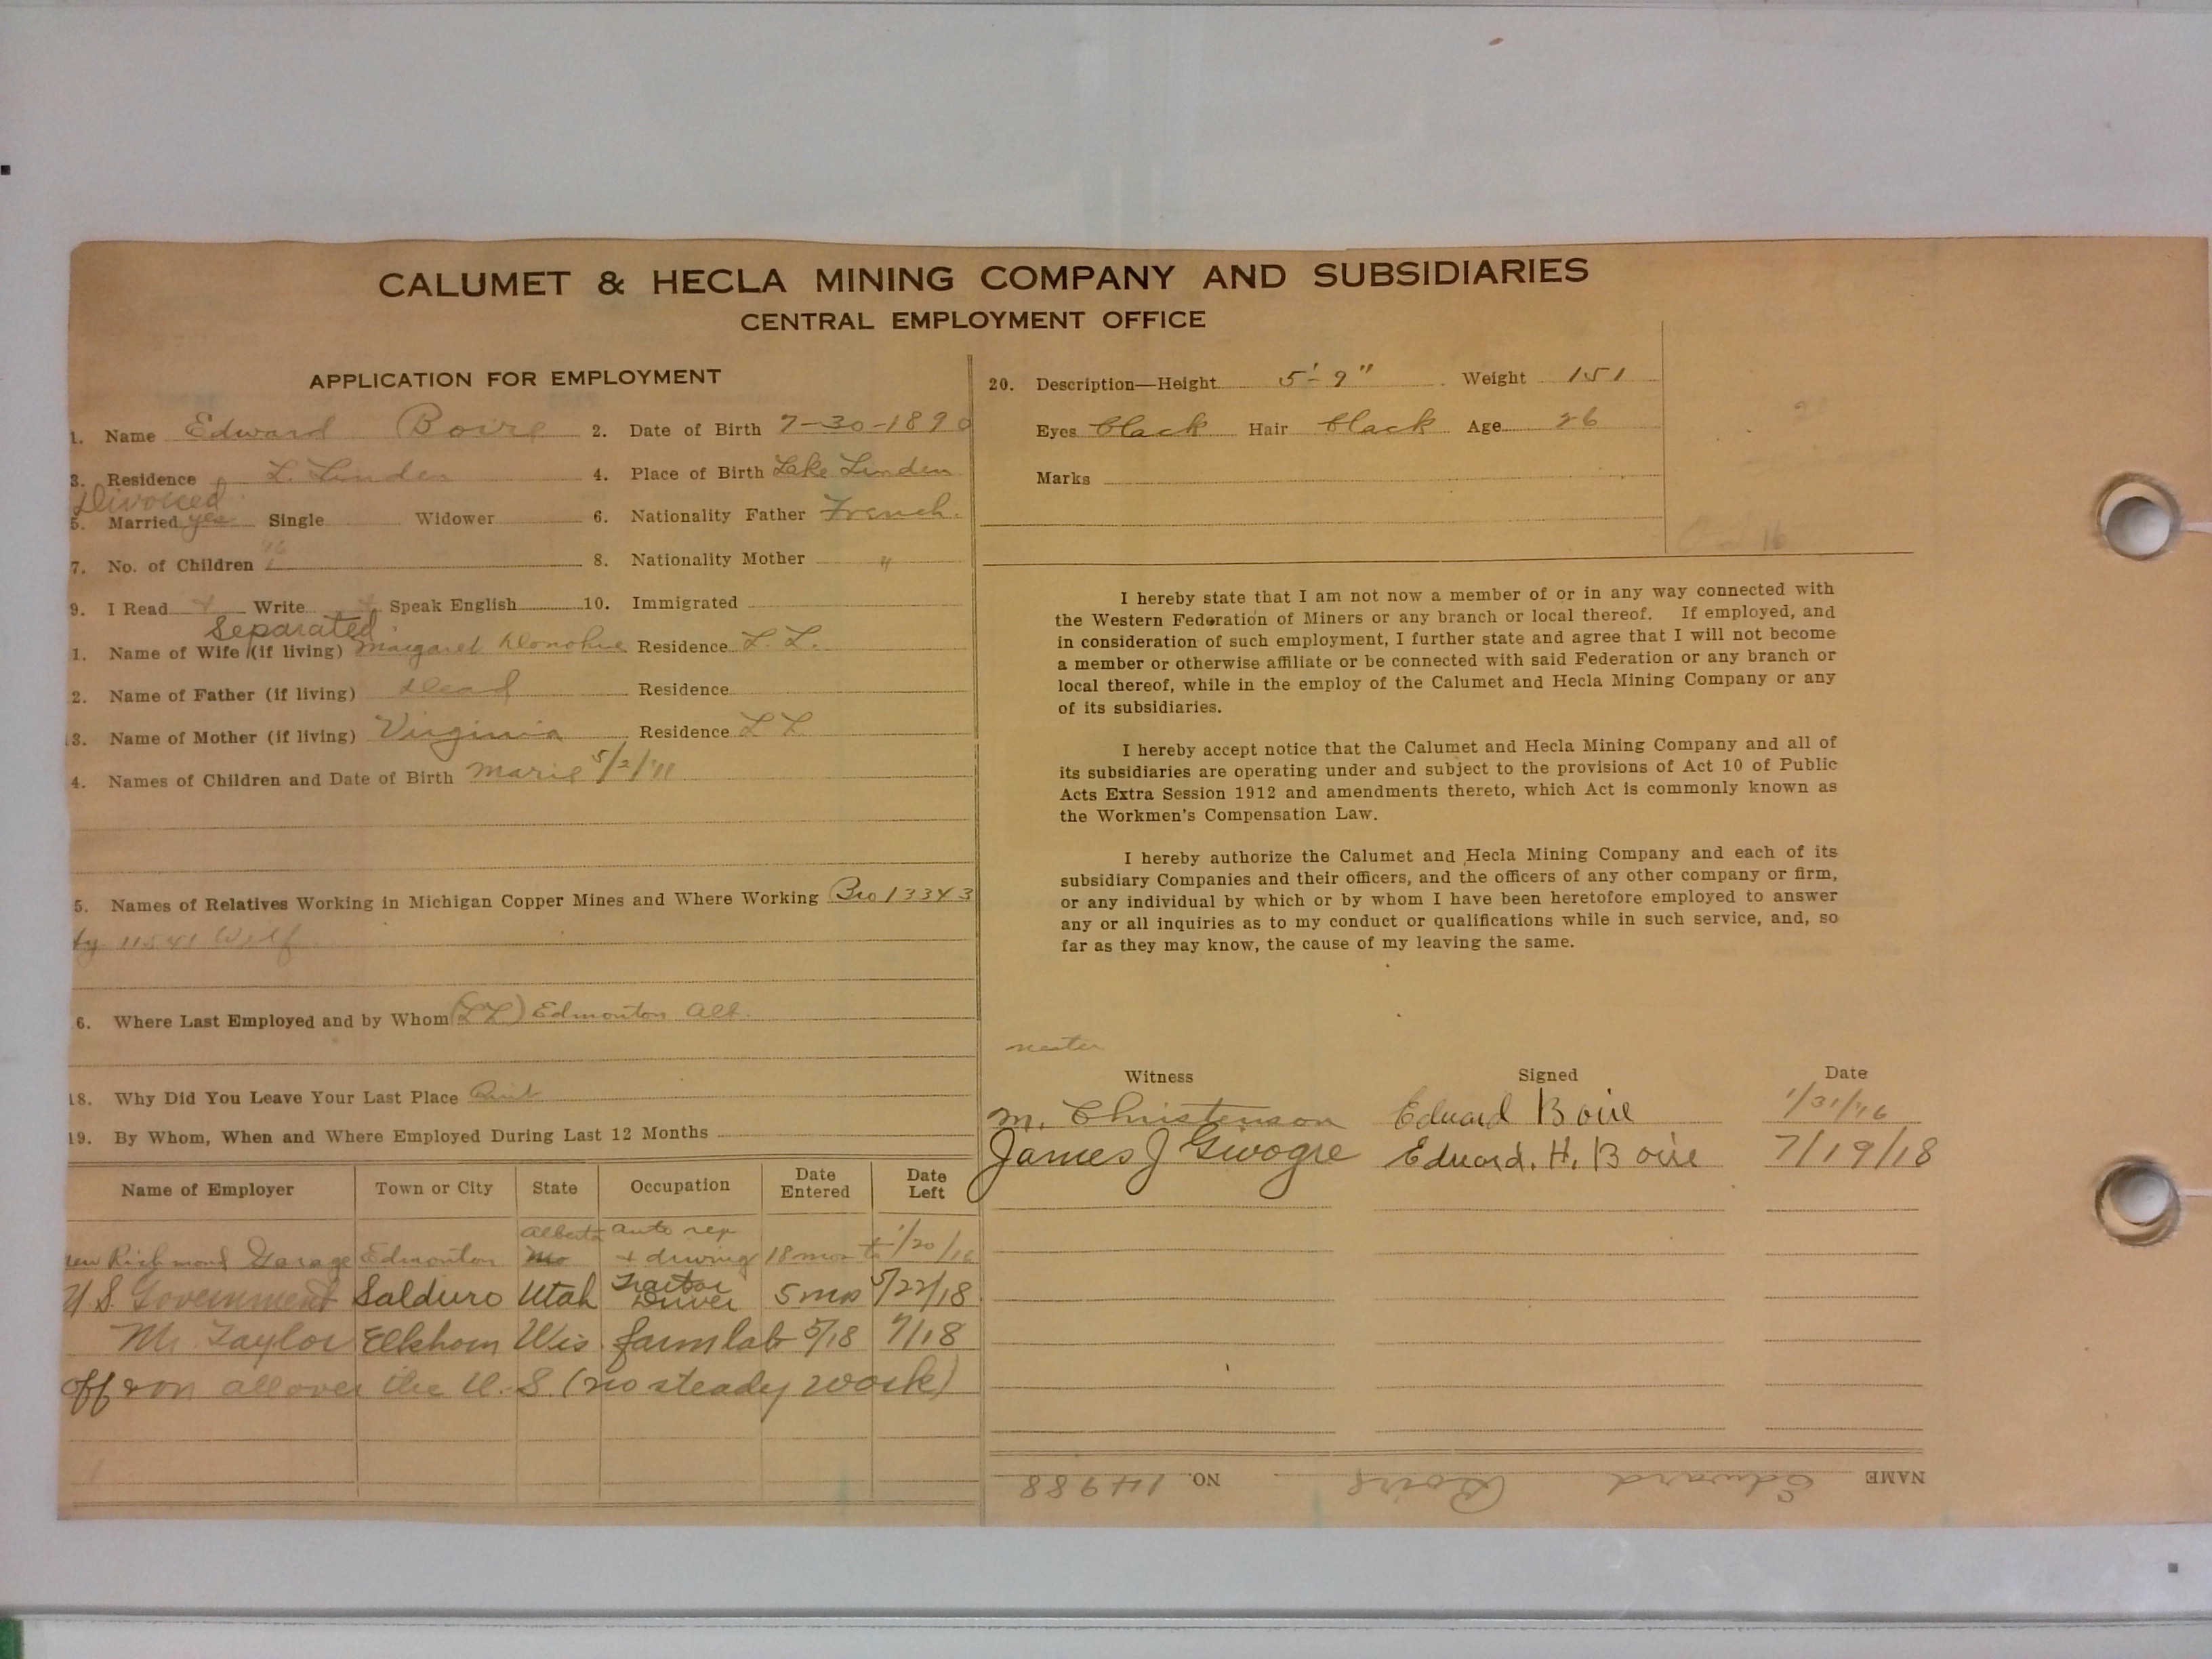 CALUMET & HECLA MINING COMPANY AND SUBSIDIARIES
CENTRAL EMPLOYMENT OFFICE
APPLICATION FOR EMPLOYMENT
1. Name Edward Boire 2. Date of Birth 7-30-1890
3. Residence L. Linden 4. Place of Birth Lake Linden
Divorced
5. Married yes Single Widower 6. Nationality Father French.
7. No. of Children 1 8. Nationality Mother "
9. I Read Write Speak English 10. Immigrated
Separated
1. Name of Wife (if living) Margaret Donohue Residence L. L.
2. Name of Father (if living) Dead Residence
13. Name of Mother (if living) Virginia Residence L L
4. Names of Children and Date of Birth Marie 5/2/'11
5. Names of Relatives Working in Michigan Copper Mines and Where Working Bro 13343
11541 Wilf
6. Where Last Employed and by Whom (LL) Edmonton Alb.
18. Why Did You Leave Your Last Place Quit
19. By Whom, When and Where Employed During Last 12 Months
Name of Employer Town or City State Occupation Date Entered Date Left
Alberta Auto rep
New Richmond Garage Edmonton Mo + driving 18 mos to 1/20/16
U S. Government Salduro Utah Tractor Driver 5 mos 5/22/18
Mr. Taylor Elkhorn Wis. farm lab 5/18 7/18
off & on all over the U. S. (no steady work)
20. Description—Height 5'-9" Weight 151
Eyes black Hair black Age 26
Marks
I hereby state that I am not now a member of or in any way connected with
the Western Federation of Miners or any branch or local thereof. If employed, and
in consideration of such employment, I further state and agree that I will not become
a member or otherwise affiliate or be connected with said Federation or any branch or
local thereof, while in the employ of the Calumet and Hecla Mining Company or any
of its subsidiaries.
I hereby accept notice that the Calumet and Hecla Mining Company and all of
its subsidiaries are operating under and subject to the provisions of Act 10 of Public
Acts Extra Session 1912 and amendments thereto, which Act is commonly known as
the Workmen's Compensation Law.
I hereby authorize the Calumet and Hecla Mining Company and each of its
subsidiary Companies and their officers, and the officers of any other company or firm,
or any individual by which or by whom I have been heretofore employed to answer
any or all inquiries as to my conduct or qualifications while in such service, and, so
far as they may know, the cause of my leaving the same.
Witness Signed Date
M. Christenson Edward Boire 1/31/'16
James J Givogre Edward. H. Boire 7/19/18
NAME Edward Boire NO. 14988